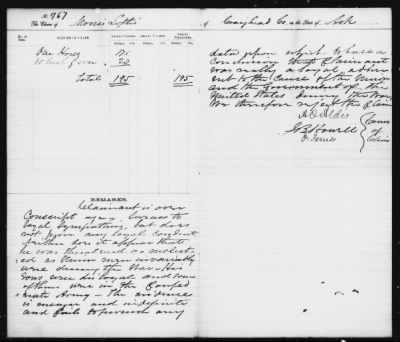 No. 767
The Claim of Morris Loftis of Craighead Co. in the State of Ark
No. of Item. NATURE OF CLAIM. AMOUNT CLAIMED. AMOUNT ALLOWED. AMOUNT DISALLOWED.
Dollars. Cts. Dollars. Cts. Dollars. Cts.
One Horse
10 bush of corn 20
Total 195 195
REMARKS.
Claimant is over
Conscript age. Swears to
loyal sympathies, but does
not prove any loyal conduct
neither does it appear that
he was threatened or molest-
ed as Union men invariably
were during the War. His
sons were disloyal and some
of them were in the Confed-
erate Army - The evidence
is meager and indefinite
and fails to furnish any
data upon which to base a
conclusion that Claimant
was really a loyal adher-
ent to the Cause of the Union
and the Government of the
United States during the War
We therefore reject the Claim
A. O. Aldis
J. B. Howell
O. Ferriss
Comrs
of
Claims